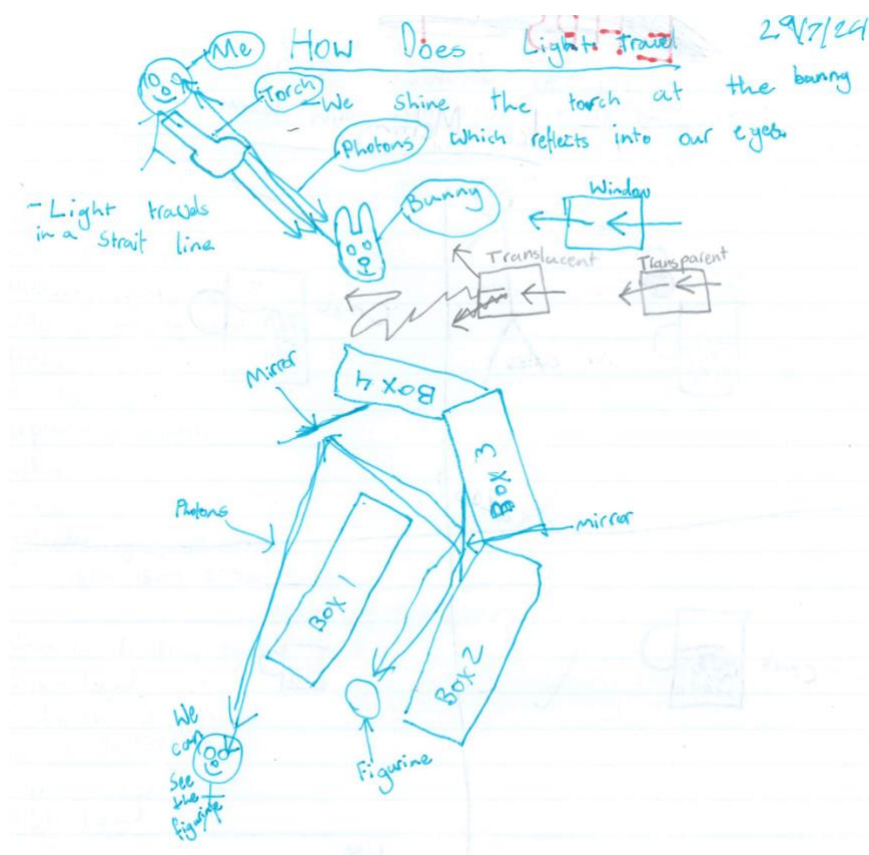 How Does Light Travel
29/7/24
Me
Torch
- We shine the torch at the bunny
which reflects into our eyes.
Photons
Bunny
- Light travels
in a strait line
Window
Translucent
Transparent
Mirror
BOX 4
BOX 3
Photons
mirror
BOX 1
BOX 2
We
can
See
the
figurine
Figurine